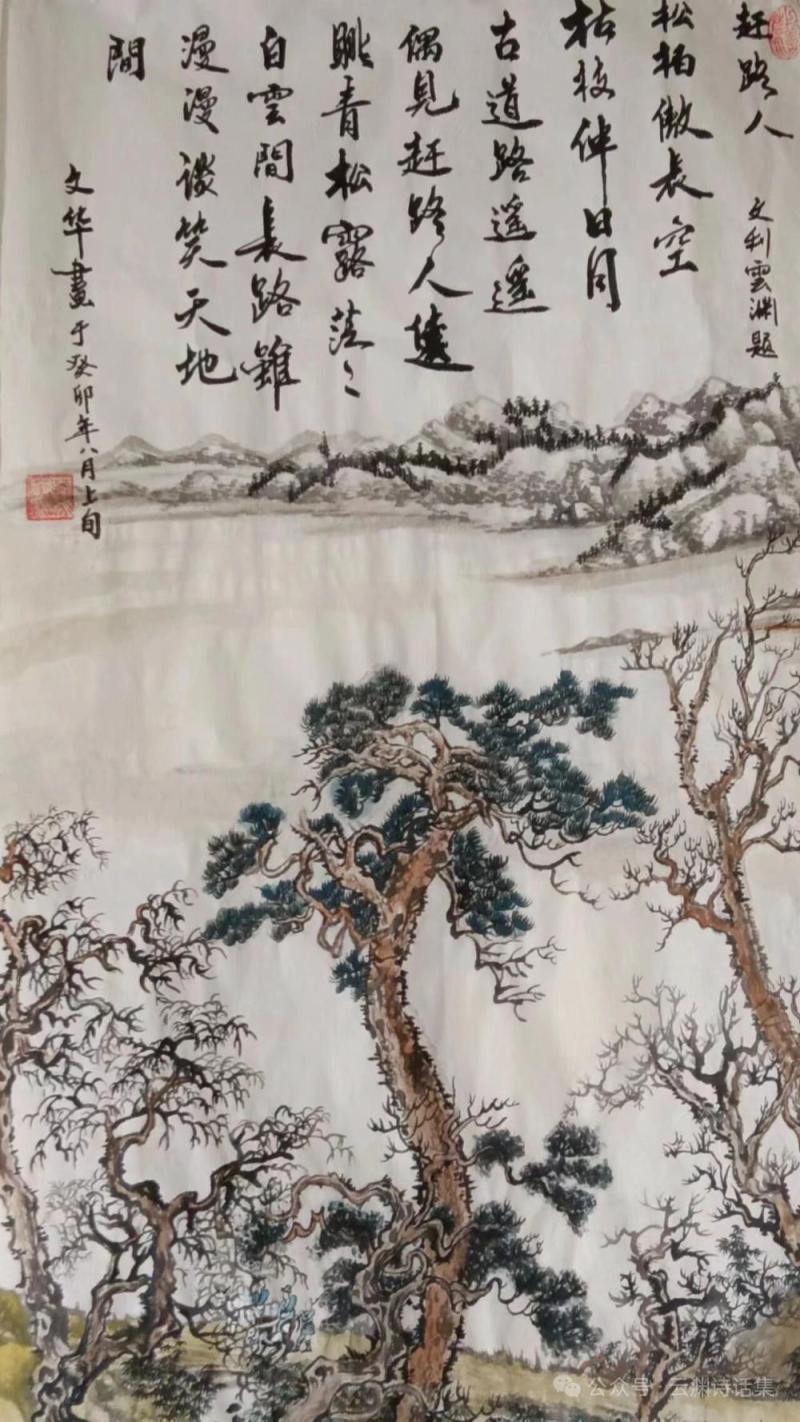 赶路人
文利雲渊題
松柏傲長空
枯枝伸日月
古道路遥遥
偶見赶路人遠
眺青松露茫々
白雲間長路雖
漫漫谈笑天地
間
文华畫于癸卯年八月上旬
公众号·云渊诗话集